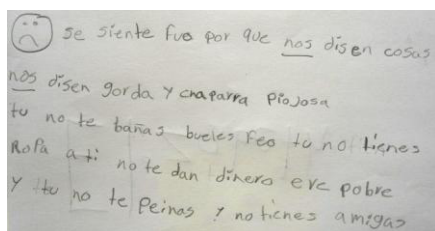 se siente fue por que nos disen cosas
nos disen gorda y chaparra piojosa
tu no te bañas bueles feo tu no tienes
Ropa a ti no te dan dinero ere pobre
y tu no te peinas y no tienes amigas